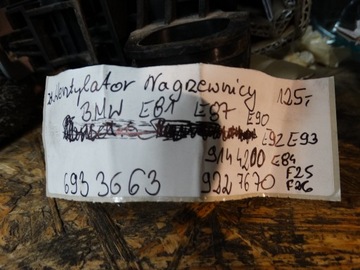 Wentylator Nagrzewnicy 125,-
BMW E81 E87 E90
E92 E93
9144200 E84
693 3663 922 7670 F25
F26